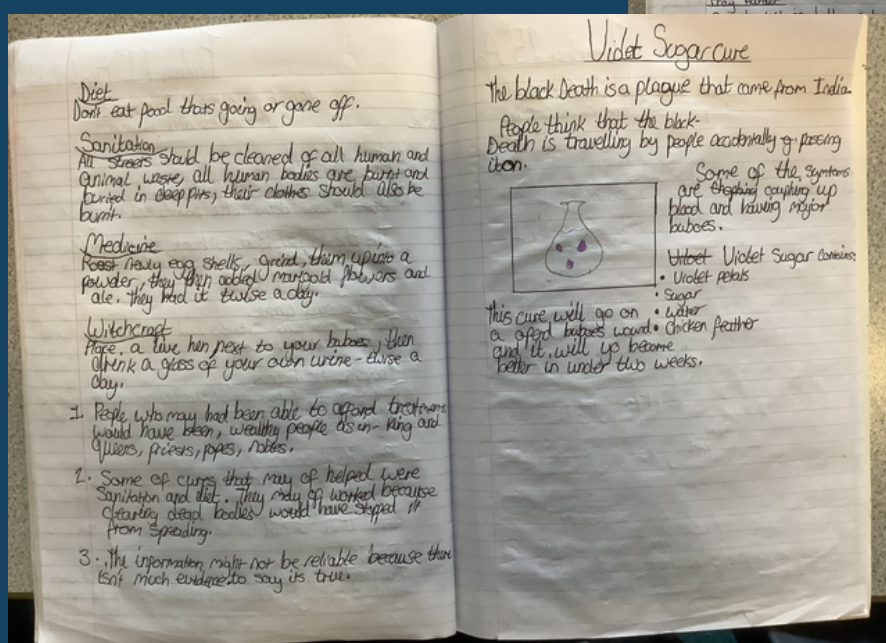 Diet
Don't eat food thats going or gone off.
Sanitation
All streets should be cleaned of all human and
animal waste, all human bodies are burnt and
buried in deep pits, their clothes should also be
burnt.
Medicine
Roast newly egg shells, grind, them up into a
powder, they then added marigold flowers and
ale. they had it twise a day.
Witchcraft
Place a live hen next to your buboes, then
drink a glass of your own urine - twise a
day.
1. People who may had been able to afford treatments
would have been, wealthy people as in - king and
queens, priests, popes, nobles.
2. Some of cures that may of helped were
Sanitation and diet. They may of worked because
clearing dead bodies would have stopped it
from spreading.
3. The information might not be reliable because there
isn't much evidence to say its true.
Violet Sugar cure
The black Death is a plague that came from India.
People think that the black-
Death is travelling by people accidentally passing
it on.
Some of the symtoms
are coughing up
blood and having major
buboes.
Violet Sugar contains:
• Violet petals
• Sugar
• Water
• Chicken feather
this cure will go on
a buboes wound
and it will become
better in under two weeks.